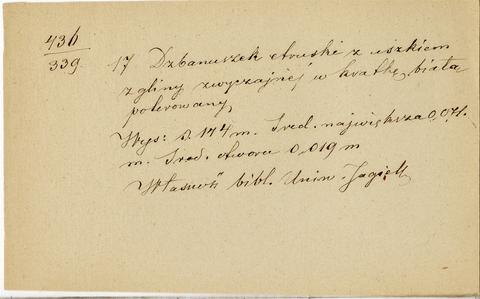 436
339
17 Dzbanuszek etruski z uszkiem
z gliny zwyczajnej w kratkę białą
polerowany
Wys: 0,174 m. Śred. największa 0,071.
m. Śred. otworu 0,019 m
Własność bibl. Uniw. Jagiell